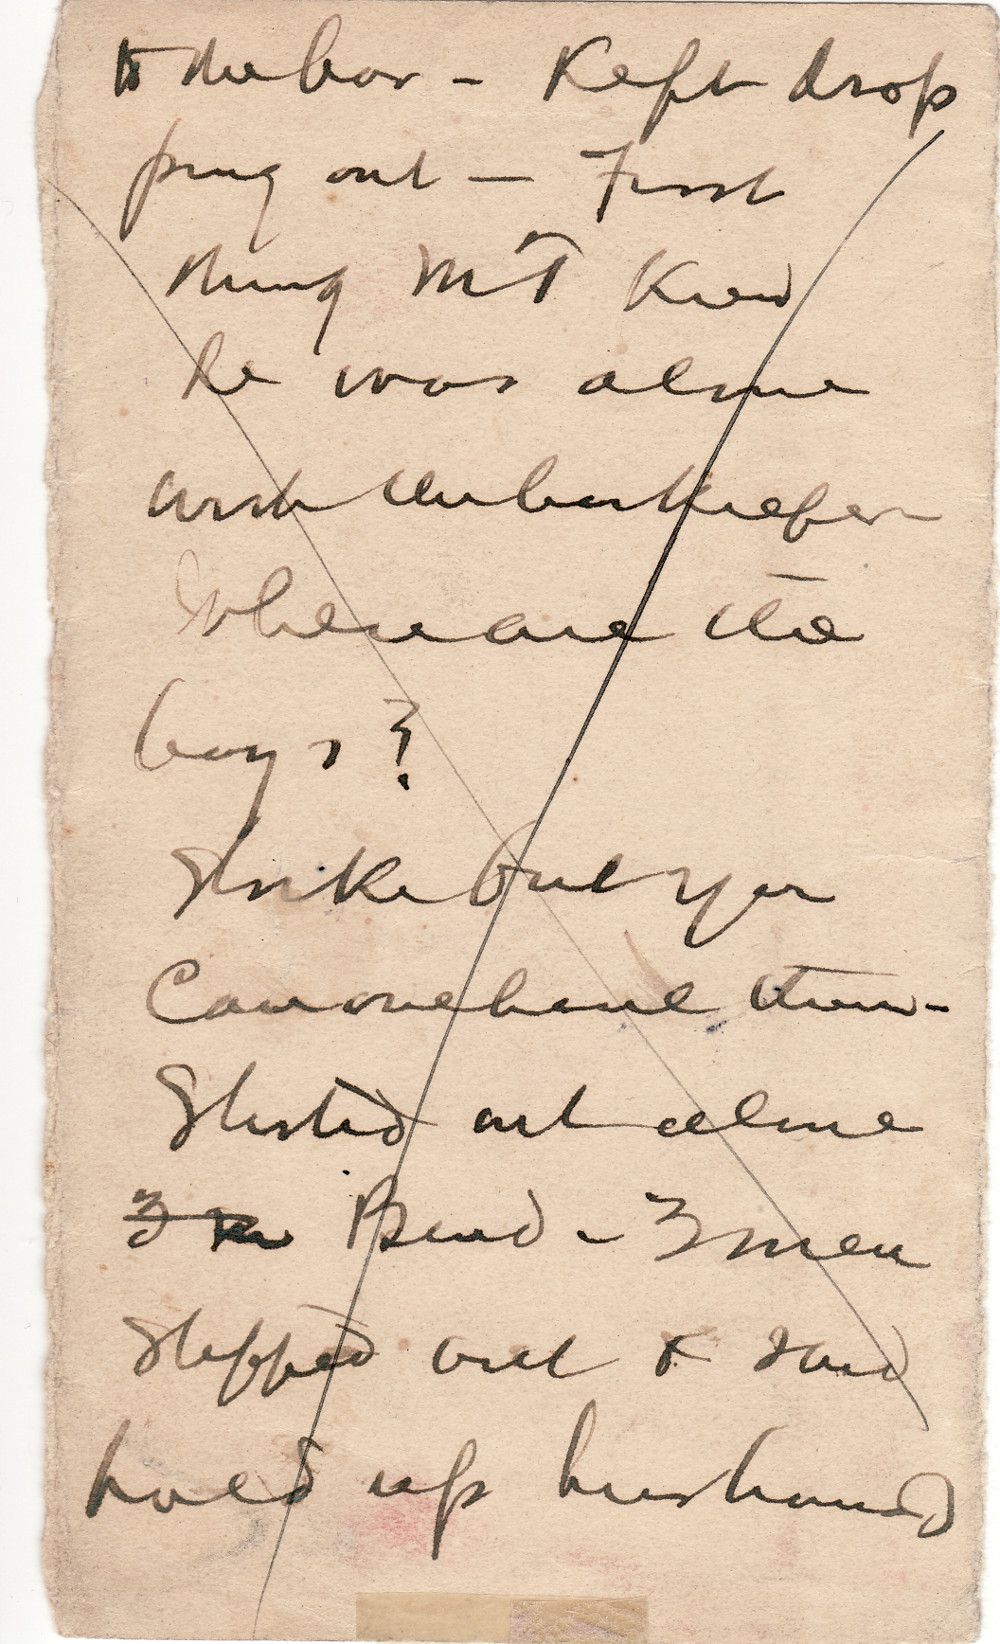 to the bar - Kept drop
ping out - First
thing McT Knew
he was alone
with the barkeeper
Where are the
boys?
Strike but yer
Can one have them -
Started out alone
3 Bend - 3 men
Stepped out & said
hold up husband